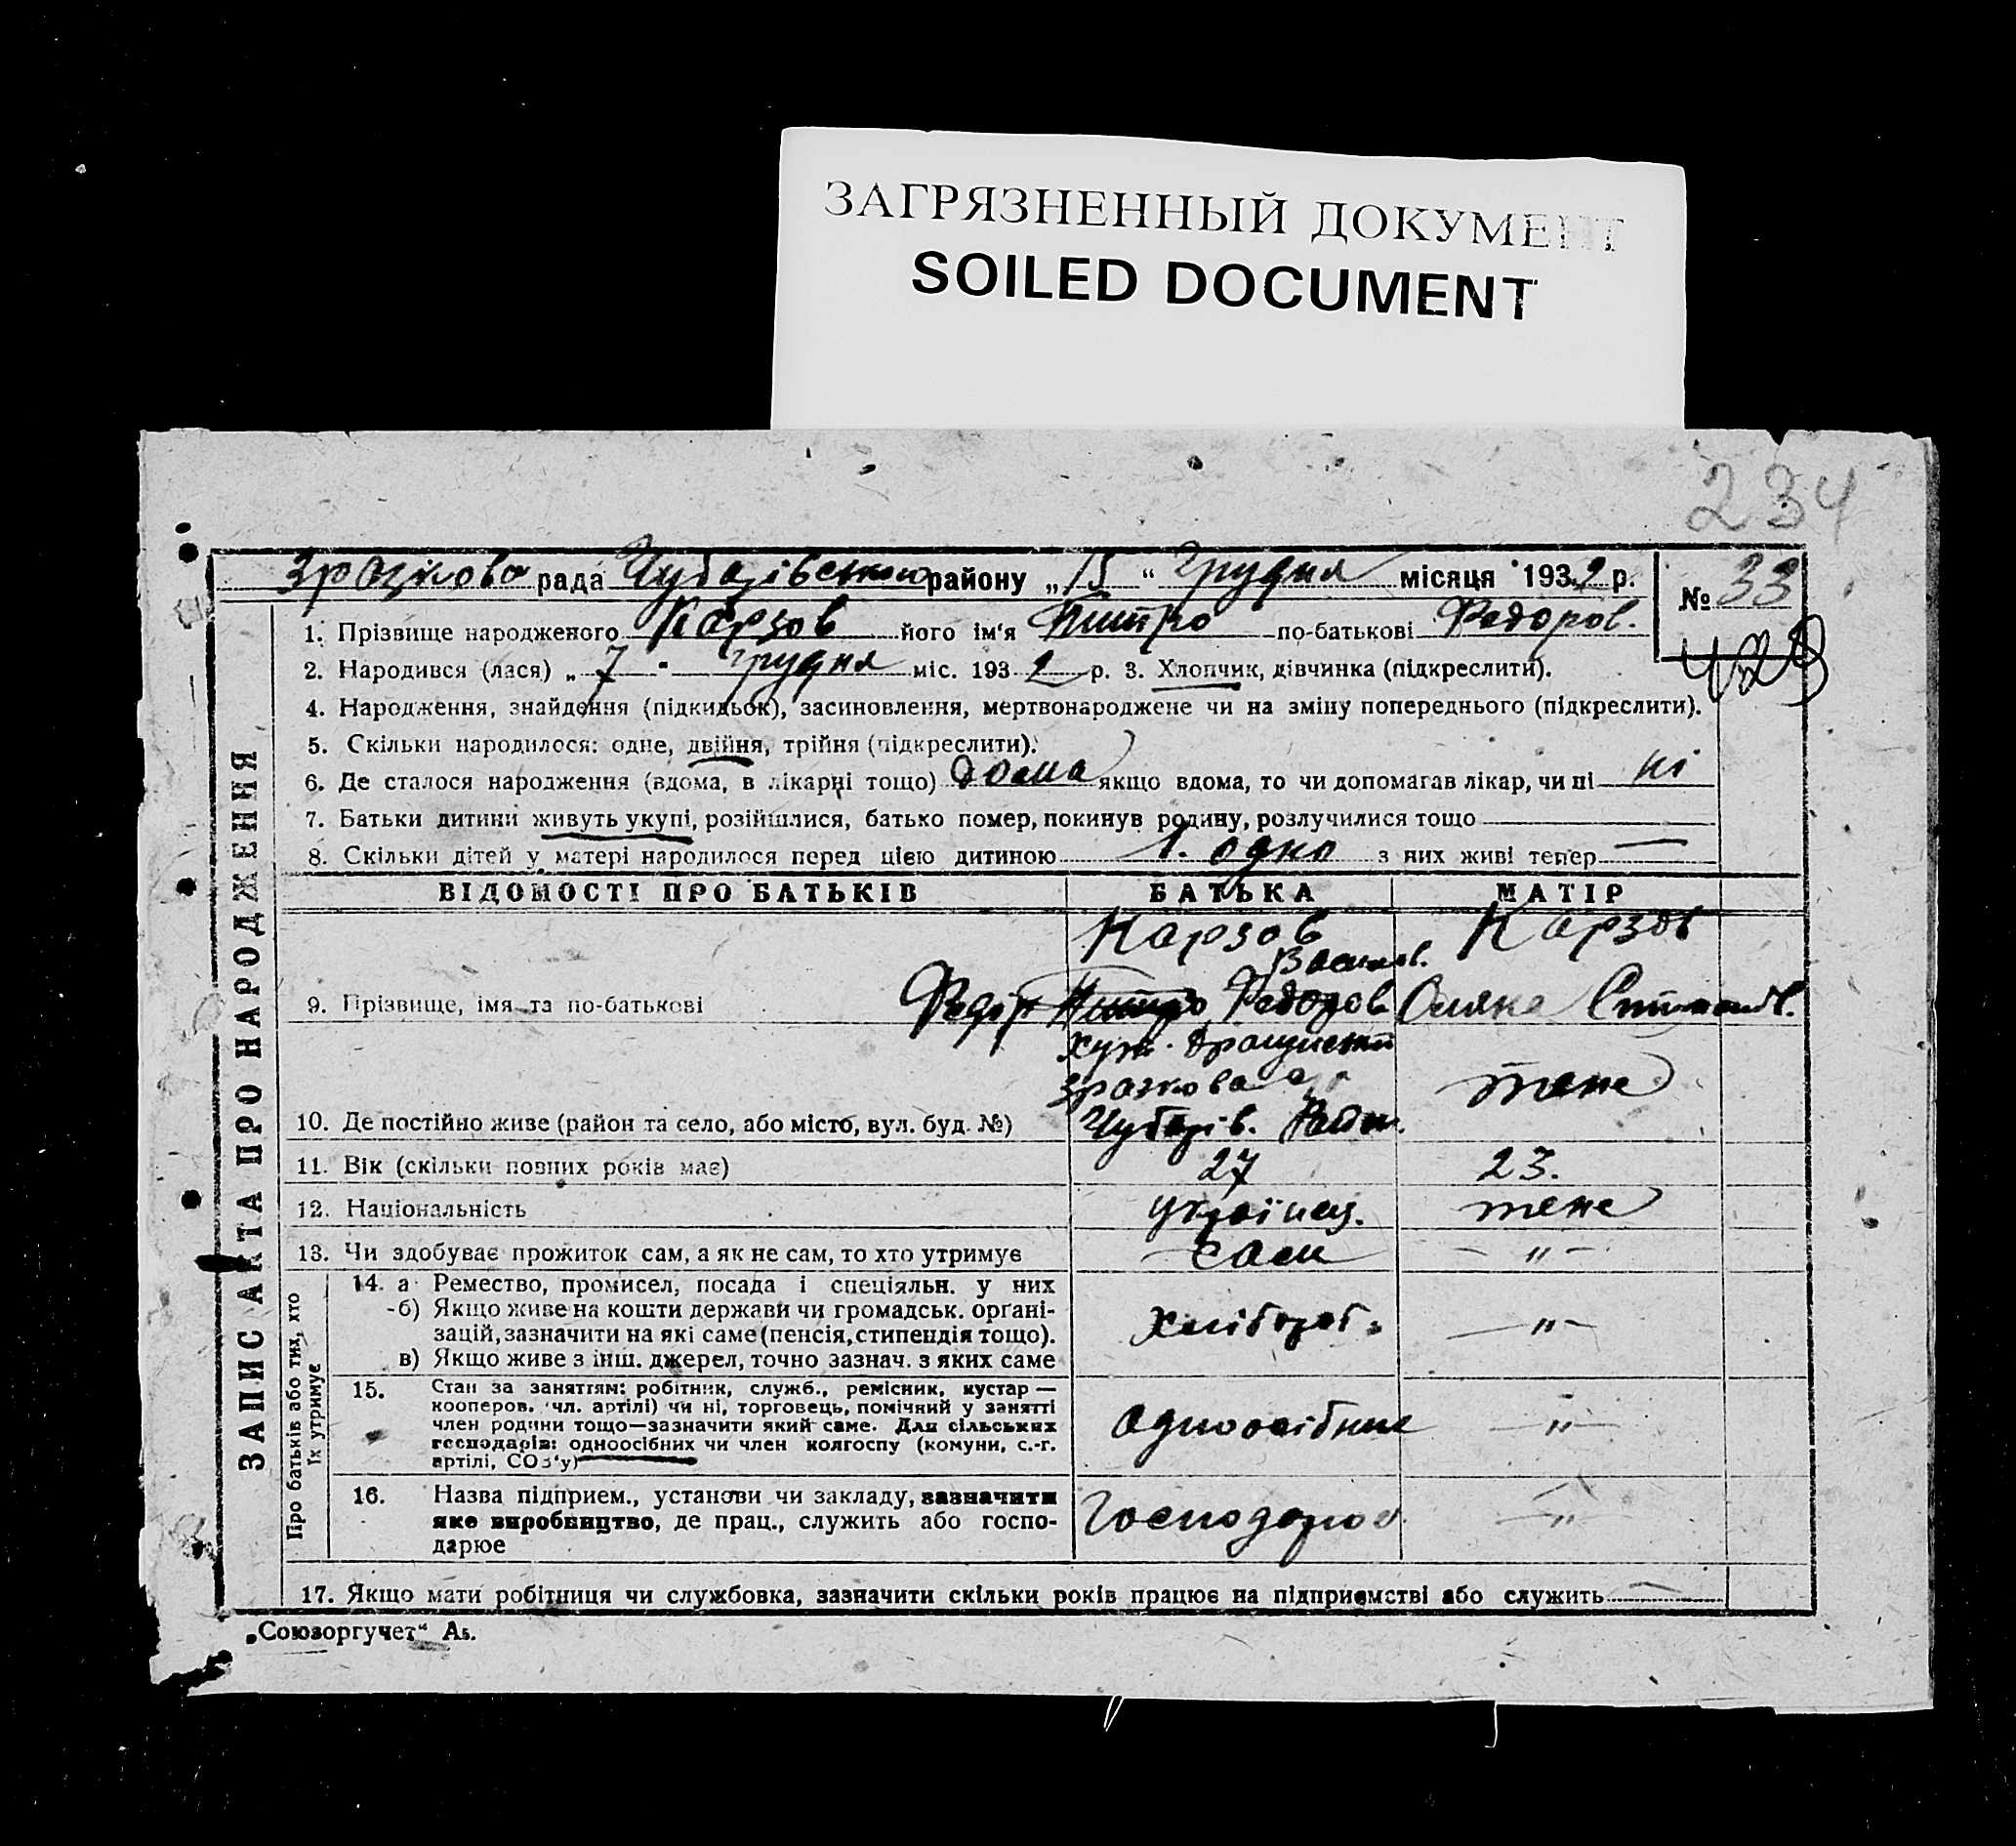 ЗАГРЯЗНЕННЫЙ ДОКУМЕНТ
SOILED DOCUMENT
234
Зразкова рада Чубарівського району „15“ Грудня місяця 1932 р.
№ 33
428
1. Прізвище народженого Карзов його ім'я по-батькові Федоров.
2. Народився (лася) „7" грудня міс. 1932 р. 3. Хлопчик, дівчинка (підкреслити).
4. Народження, знайдення (підкидьок), засиновлення, мертвонароджене чи на зміну попереднього (підкреслити).
5. Скільки народилося: одне, двійня, трійня (підкреслити).
6. Де сталося народження (вдома, в лікарні тощо) дома якщо вдома, то чи допомагав лікар, чи ні ні
7. Батьки дитини живуть укупі, розійшлися, батько помер, покинув родину, розлучилися тощо
8. Скільки дітей у матері народилося перед цією дитиною 1. одно з них живі тепер —
ЗАПИС АКТА ПРО НАРОДЖЕННЯ
ВІДОМОСТІ ПРО БАТЬКІВ БАТЬКА МАТІР
Карзов Карзов
Васильов.
9. Прізвище, імя та по-батькові Федір Федоров
Хут.
Зразкова
теже
10. Де постійно живе (район та село, або місто, вул. буд. №) Чубарів. Район.
11. Вік (скільки повних років має) 27 23.
12. Національність українец. теже
13. Чи здобуває прожиток сам, а як не сам, то хто утримує сам — „ —
Про батьків або тих, хто їх утримує
14. а Ремество, промисел, посада і спеціяльн. у них
б) Якщо живе на кошти держави чи громадськ. органі-
зацій, зазначити на які саме (пенсія, стипендія тощо). Хлібороб. — „ —
в) Якщо живе з інш. джерел, точно зазнач. з яких саме
15. Стан за заняттям: робітник, служб., ремісник, кустар —
кооперов. чл. артілі) чи ні, торговець, помічний у занятті
член родини тощо—зазначити який саме. Для сільських одноосібник — „ —
господарів: одноосібних чи член колгоспу (комуни, с.-г.
артілі, СОЗ'у)
16. Назва підприєм., установи чи закладу, зазначити
яке виробництво, де прац., служить або госпо- — „ —
дарює
17. Якщо мати робітниця чи службовка, зазначити скільки років працює на підприємстві або служить —
„Союзоргучет“ А5.